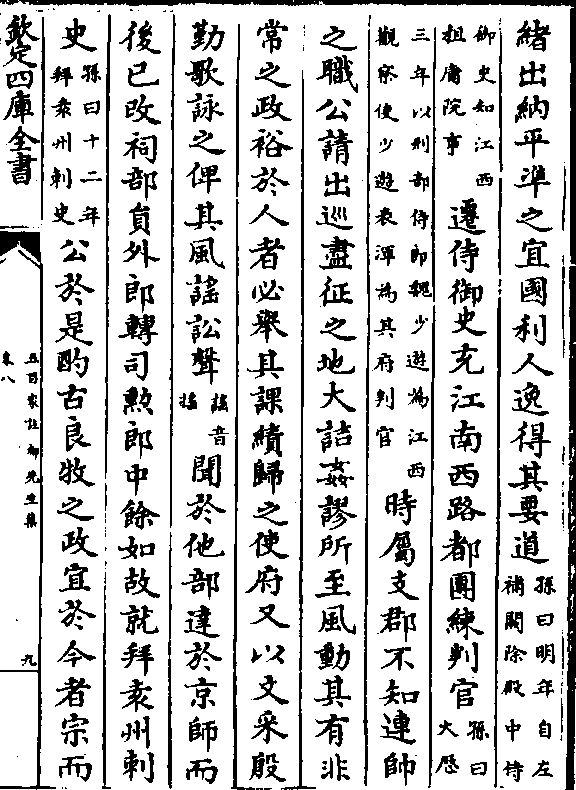 緒出納平準之宜國利人逸得其要道孫曰明年自左補闕除殿中侍
御史知江西租庸院事遷侍御史充江南西路都團練判官孫曰大厯
三年以刑部侍郎魏少遊為江西觀察使少遊表渾為其府判官時屬支郡不知連帥
之職公請出巡盡征之地大詰姦謬所至風動其有非
常之政裕於人者必舉其課績歸之使府又以文采殷
勤歌詠之俾其風謠訟聲謠音搖聞於他部達於京師而
後已改祠部員外郎轉司勲郎中餘如故就拜袁州刺
史孫曰十二年拜袁州刺史公於是酌古良牧之政宜於今者宗而
欽定四庫全書
五百家註柳先生集
卷八
九